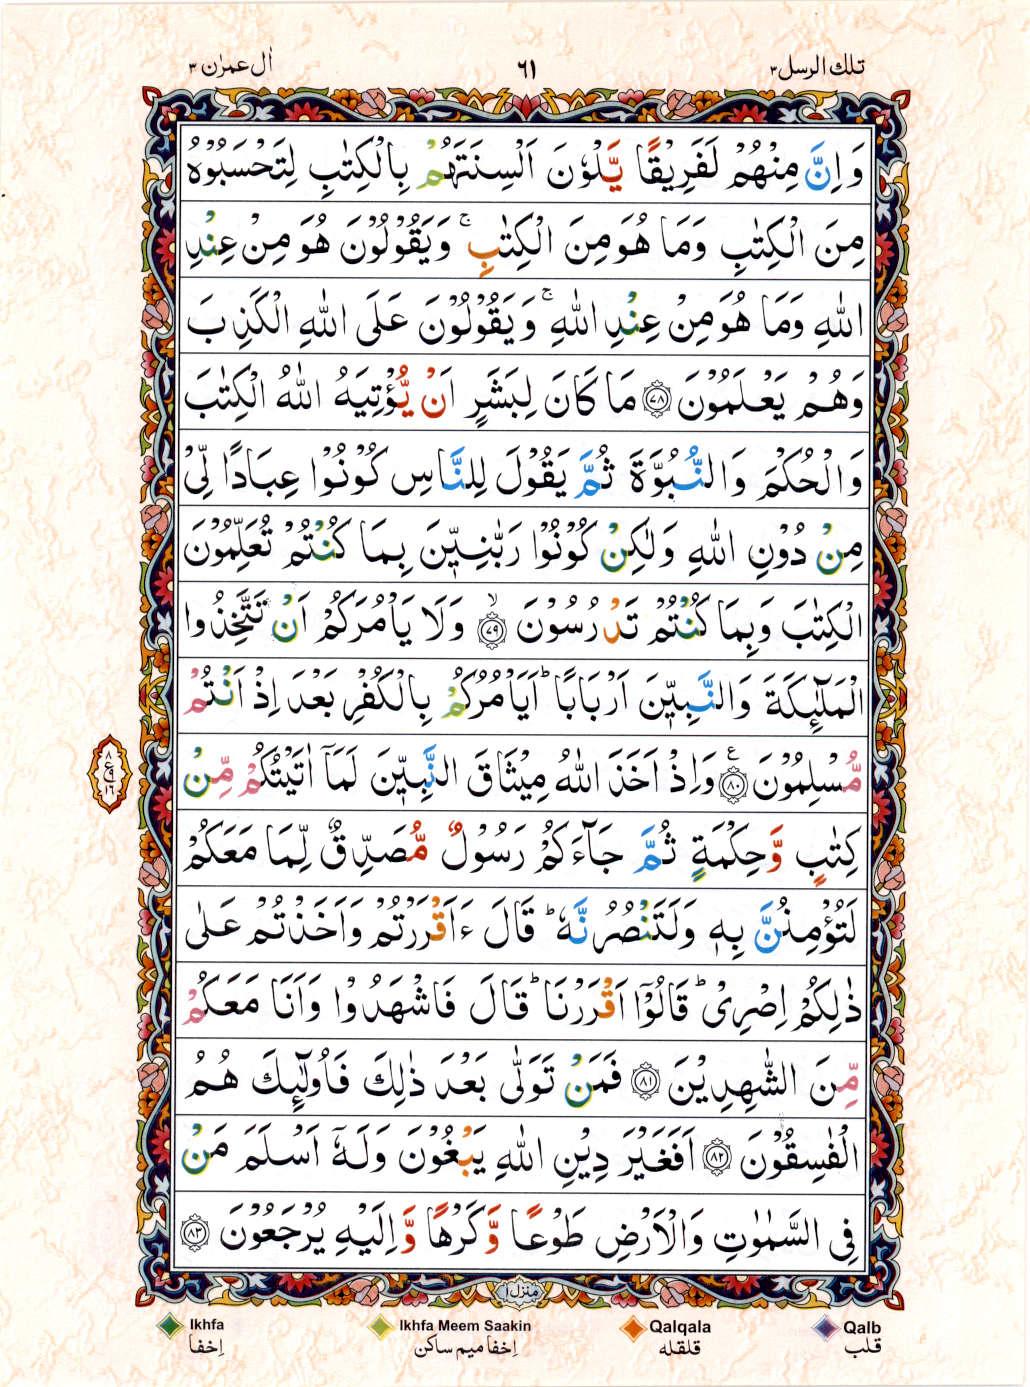 تلك الرسل ٣
٦١
اٰل عمرٰن ٣
وَ اِنَّ مِنْهُمْ لَفَرِيْقًا يَّلْوٗنَ اَلْسِنَتَهُمْ بِالْكِتٰبِ لِتَحْسَبُوْهُ
مِنَ الْكِتٰبِ وَمَا هُوَ مِنَ الْكِتٰبِ ۚ وَيَقُوْلُوْنَ هُوَ مِنْ عِنْدِ
اللّٰهِ وَمَا هُوَ مِنْ عِنْدِ اللّٰهِ ۚ وَيَقُوْلُوْنَ عَلَى اللّٰهِ الْكَذِبَ
وَهُمْ يَعْلَمُوْنَ ﴿٧٨﴾ مَا كَانَ لِبَشَرٍ اَنْ يُّؤْتِيَهُ اللّٰهُ الْكِتٰبَ
وَالْحُكْمَ وَالنُّبُوَّةَ ثُمَّ يَقُوْلَ لِلنَّاسِ كُوْنُوْا عِبَادًا لِّيْ
مِنْ دُوْنِ اللّٰهِ وَلٰكِنْ كُوْنُوْا رَبّٰنِيّٖنَ بِمَا كُنْتُمْ تُعَلِّمُوْنَ
الْكِتٰبَ وَبِمَا كُنْتُمْ تَدْرُسُوْنَ ۙ﴿٧٩﴾ وَلَا يَاْمُرَكُمْ اَنْ تَتَّخِذُوا
الْمَلٰٓئِكَةَ وَالنَّبِيّٖنَ اَرْبَابًا ؕ اَيَاْمُرُكُمْ بِالْكُفْرِ بَعْدَ اِذْ اَنْتُمْ
مُّسْلِمُوْنَ ﴿٨٠﴾ ع وَاِذْ اَخَذَ اللّٰهُ مِيْثَاقَ النَّبِيّٖنَ لَمَآ اٰتَيْتُكُمْ مِّنْ
كِتٰبٍ وَّحِكْمَةٍ ثُمَّ جَآءَكُمْ رَسُوْلٌ مُّصَدِّقٌ لِّمَا مَعَكُمْ
لَتُؤْمِنُنَّ بِهٖ وَلَتَنْصُرُنَّهٗ ؕ قَالَ ءَاَقْرَرْتُمْ وَاَخَذْتُمْ عَلٰى
ذٰلِكُمْ اِصْرِيْ ؕ قَالُوْٓا اَقْرَرْنَا ؕ قَالَ فَاشْهَدُوْا وَاَنَا مَعَكُمْ
مِّنَ الشّٰهِدِيْنَ ﴿٨١﴾ فَمَنْ تَوَلّٰى بَعْدَ ذٰلِكَ فَاُولٰٓئِكَ هُمُ
الْفٰسِقُوْنَ ﴿٨٢﴾ اَفَغَيْرَ دِيْنِ اللّٰهِ يَبْغُوْنَ وَلَهٗٓ اَسْلَمَ مَنْ
فِى السَّمٰوٰتِ وَالْاَرْضِ طَوْعًا وَّكَرْهًا وَّاِلَيْهِ يُرْجَعُوْنَ ﴿٨٣﴾
٨ ع ٩ ١٦
منزل ١
Ikhfa Ikhfa Meem Saakin Qalqala Qalb
اِخفا اِخفا ميم ساكن قلقله قلب